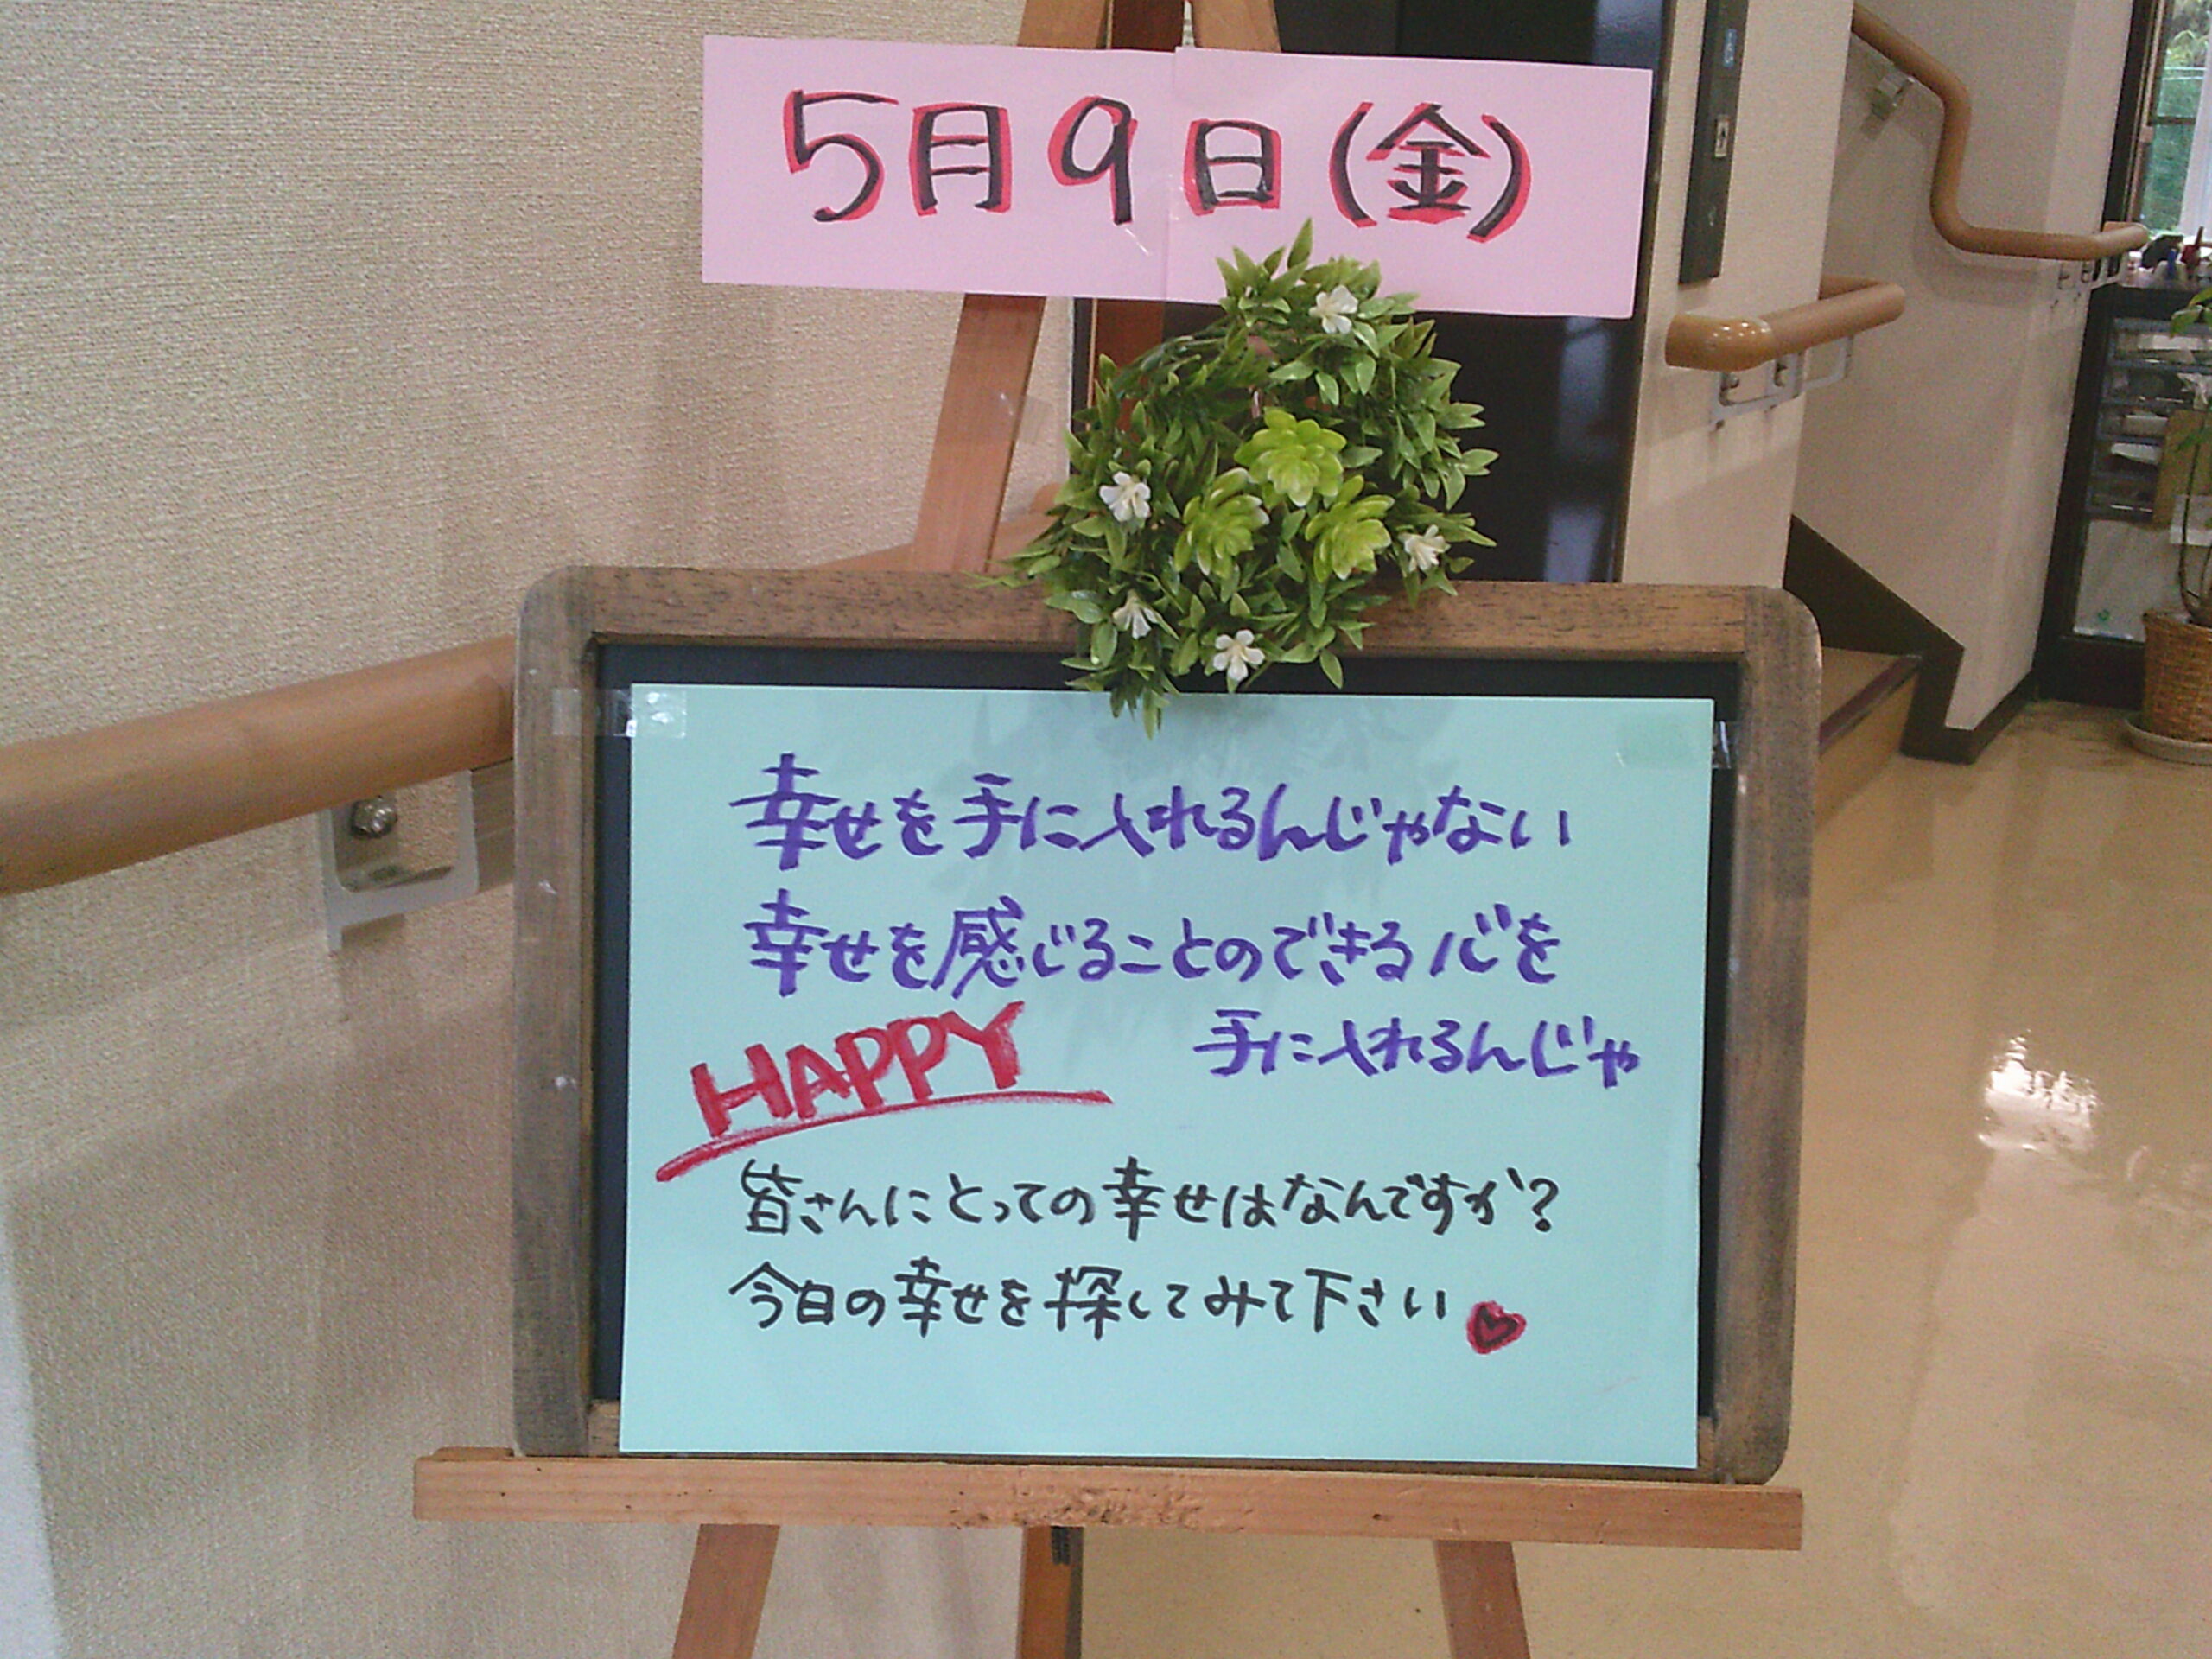 5月9日(金)
幸せを手に入れるんじゃない
幸せを感じることのできる心を
手に入れるんじゃ
HAPPY
皆さんにとっての幸せはなんですか?
今日の幸せを探してみて下さい